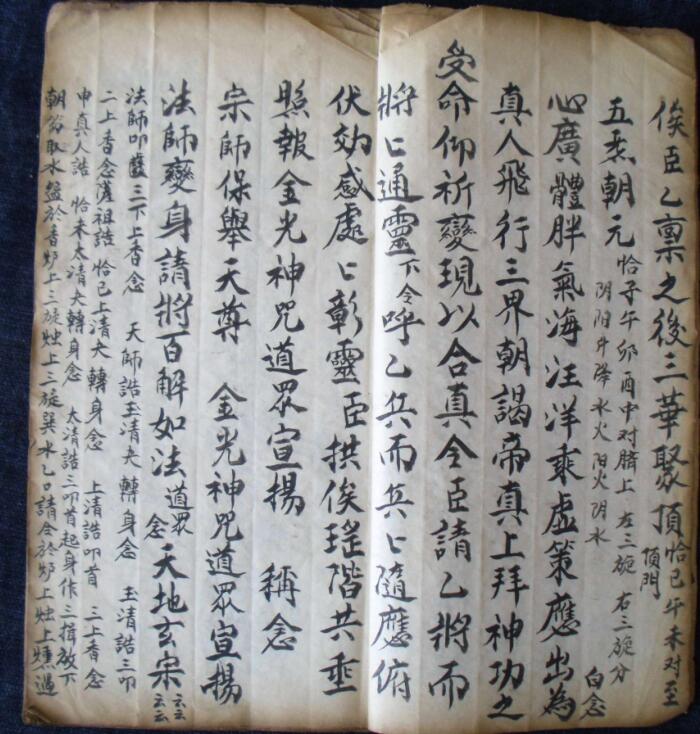 俟臣乙禀之後三華聚頂恰巳午未对至
頂門
五炁朝元恰子午卯酉中对臍上左三旋右三旋分
阴阳升降水火阳火阴水 白念
心廣體胖氣海汪洋乘虛策應出為
真人飛行三界朝謁帝真上拜神功之
受命仰祈變現以合真令臣請乙將而
將〻通靈下令呼乙兵而兵〻隨應俯
伏効感處〻彰靈臣拱俟瑤階共垂
照報金光神咒道眾宣揚 稱念
宗師保舉天尊 金光神咒道眾宣揚
法師變身請將百解如法道眾念天地玄宗云云云云
法師叩薩三下上香念 天師誥玉清夬轉身念 玉清誥三叩
二上香念薩祖誥 恰巳上清夬轉身念 上清誥叩首 三上香念
申真人誥 恰未太清夬轉身念 太清誥三叩首起身作三揖放下
朝笏取水盤於香炉上三旋烛上三旋巽水乙口請令於炉上烛上燻過